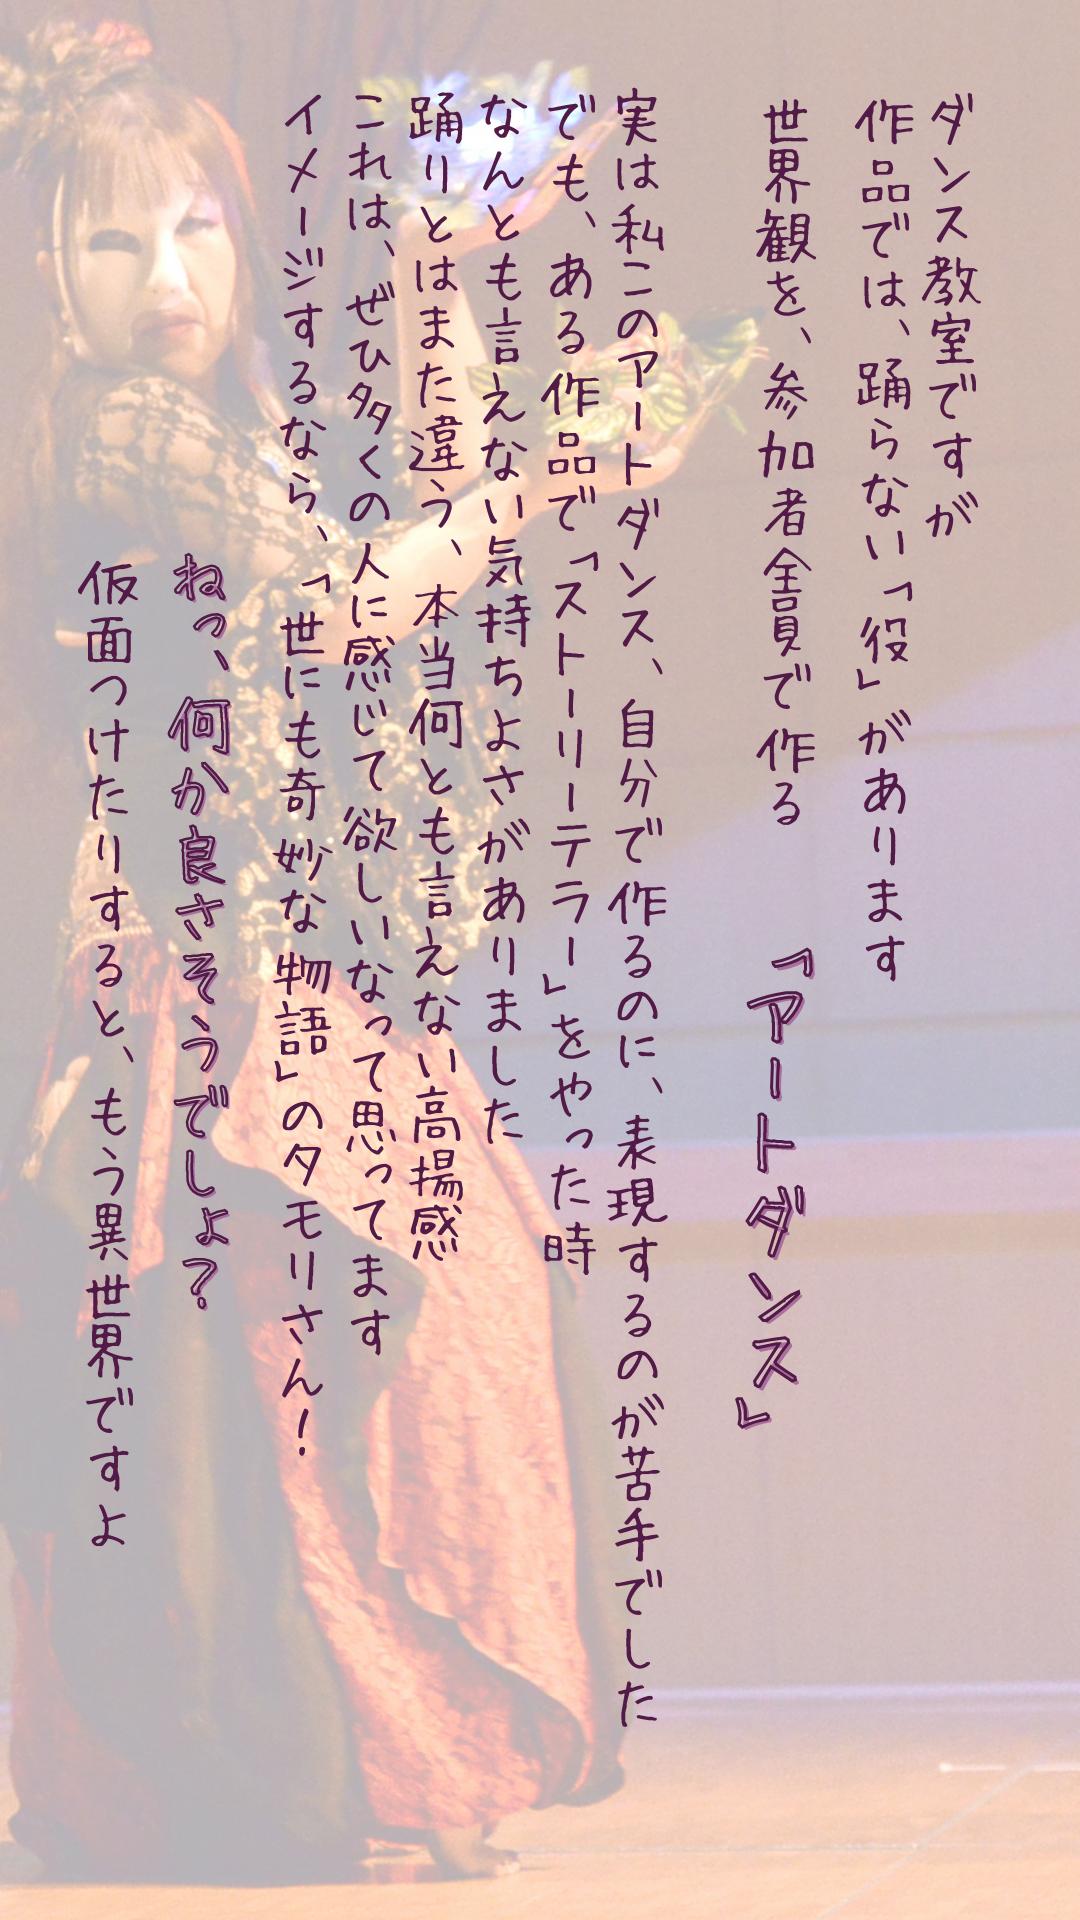 ダンス教室ですが
作品では、踊らない「役」があります
世界観を、参加者全員で作る 『アートダンス』
実は私このアートダンス、自分で作るのに、表現するのが苦手でした
でも、ある作品で「ストーリーテラー」をやった時
なんとも言えない気持ちよさがありました
踊りとはまた違う、本当何とも言えない高揚感
これは、ぜひ多くの人に感じて欲しいなって思ってます
イメージするなら、「世にも奇妙な物語」のタモリさん！
ねっ、何か良さそうでしょ？
仮面つけたりすると、もう異世界ですよ